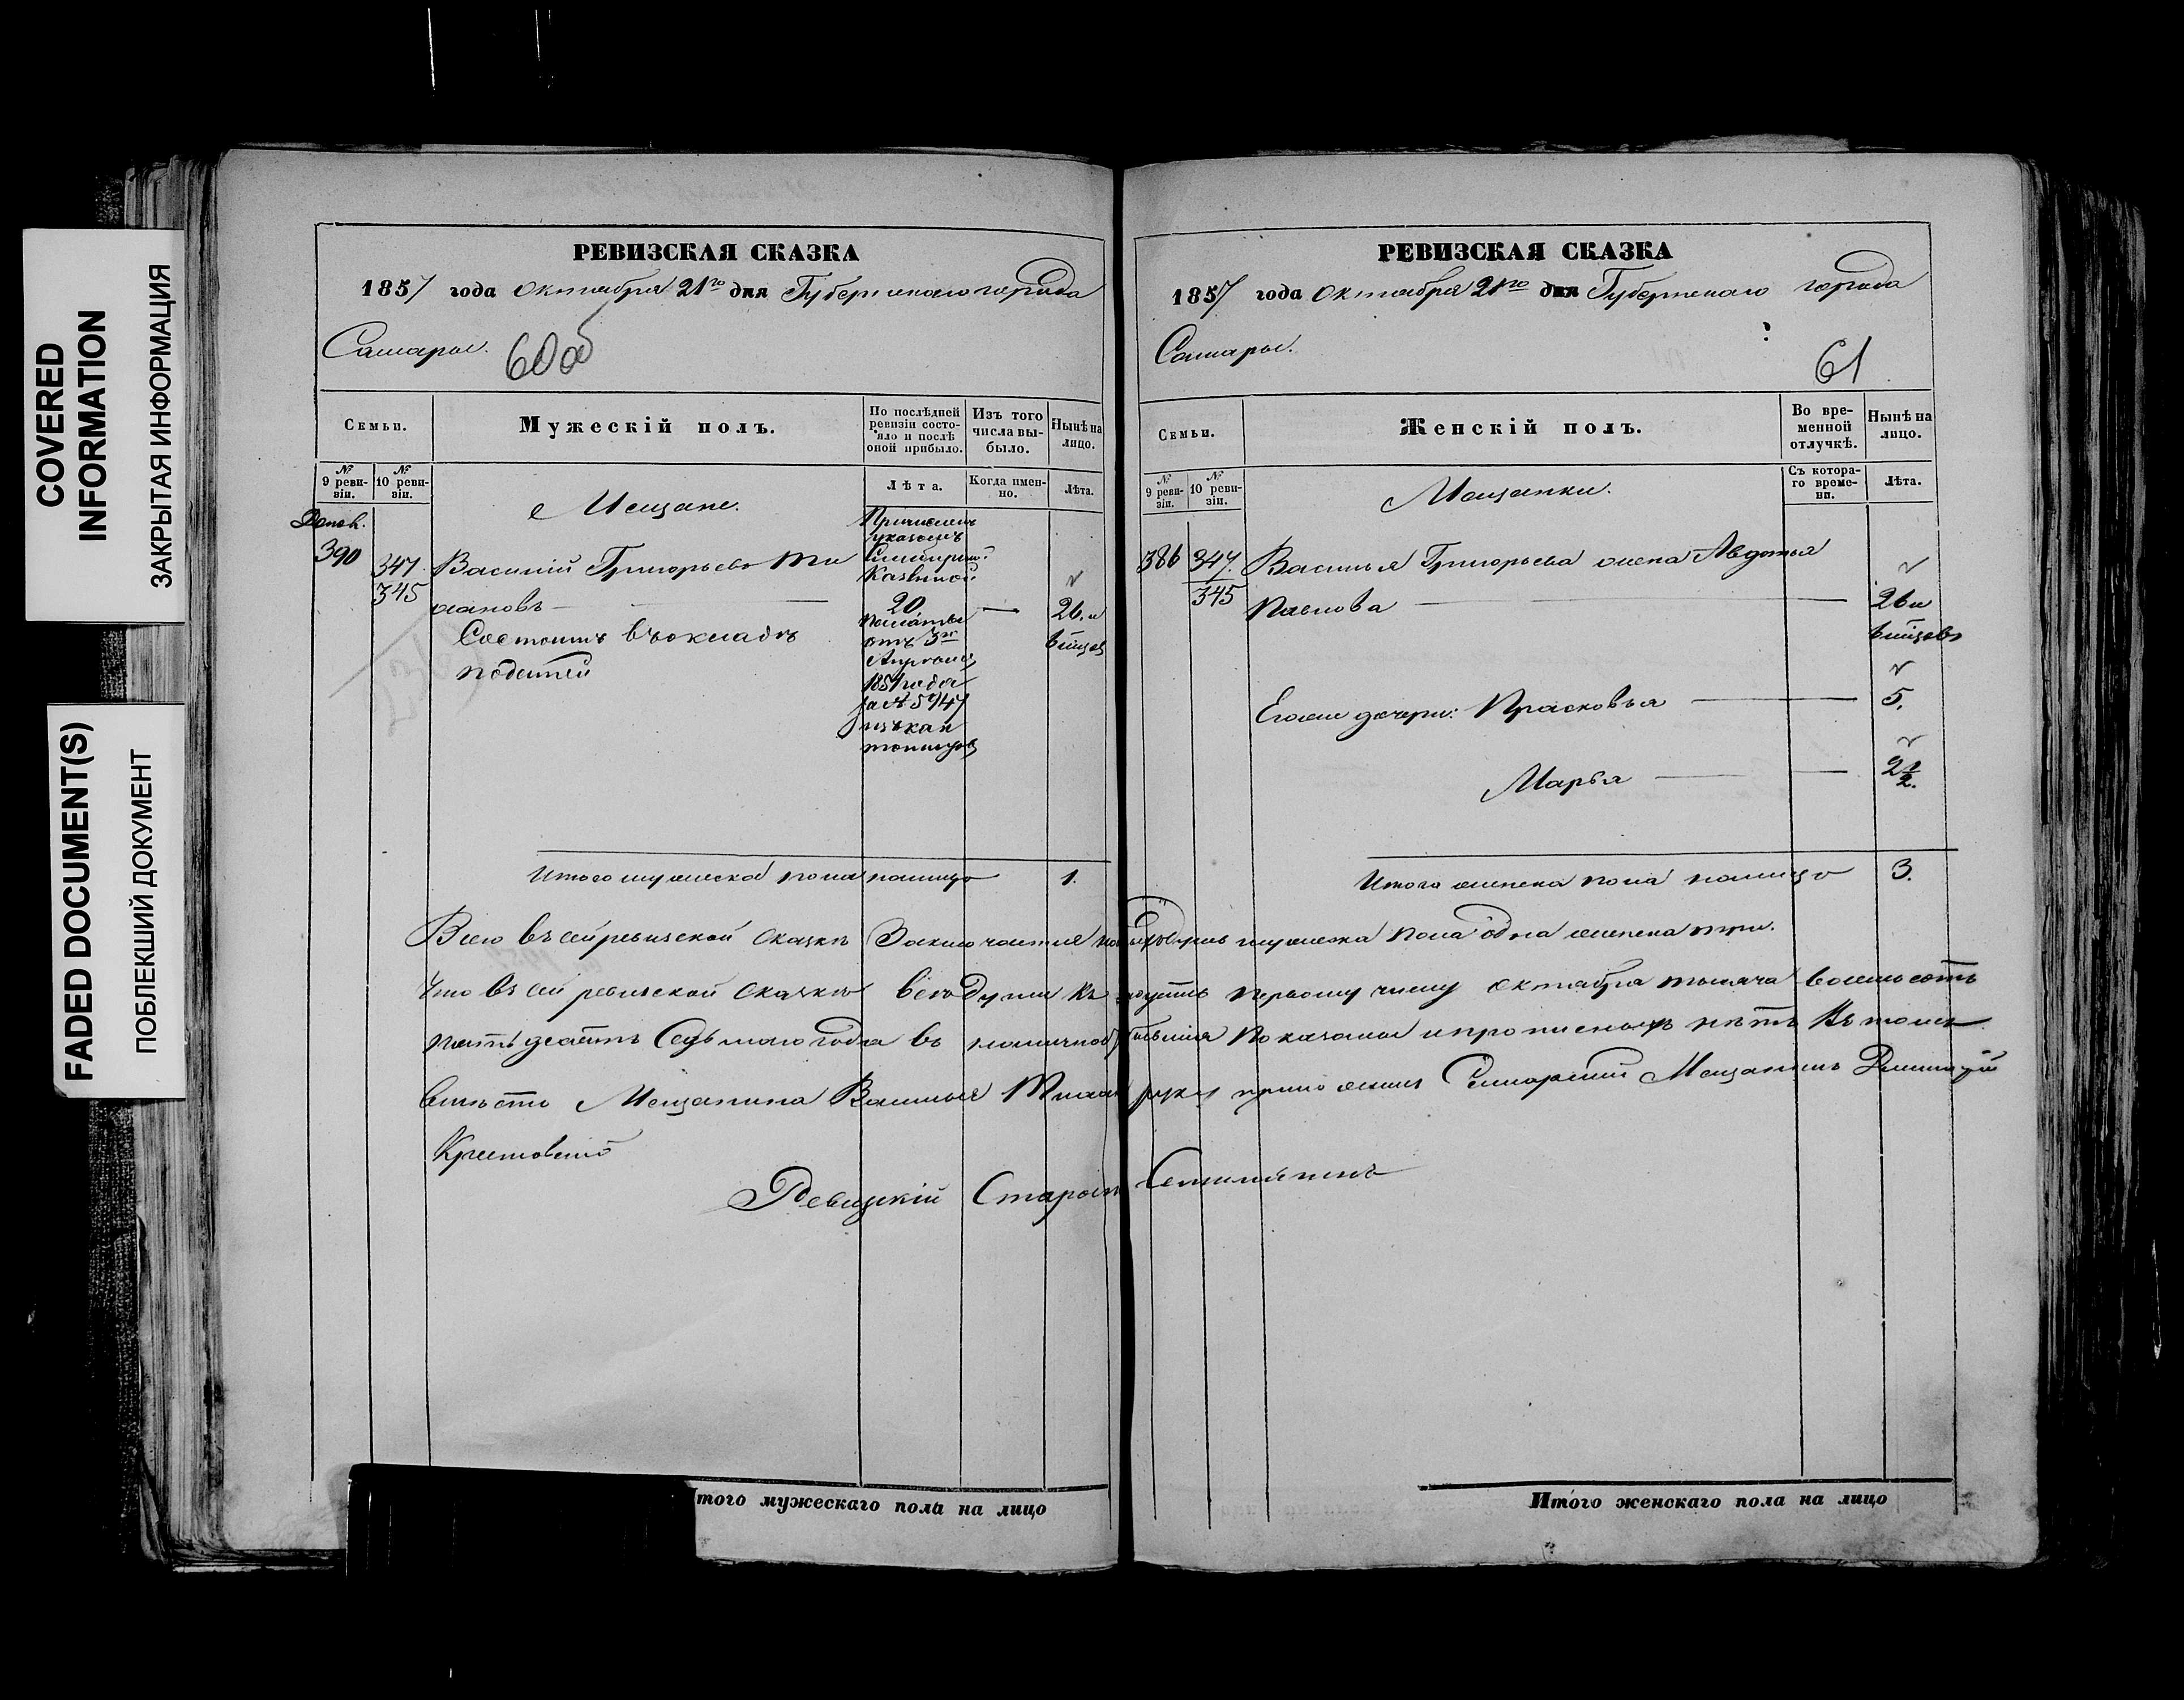 COVERED
INFORMATION
ЗАКРЫТАЯ ИНФОРМАЦИЯ
FADED DOCUMENT(S)
ПОБЛЕКШИЙ ДОКУМЕНТ
РЕВИЗСКАЯ СКАЗКА
1857 года Октября 21го дня Губернскаго города
Самары.
60об
Семьи.
Мужескій полъ.
По послѣдней ревизіи состояло и послѣ оной прибыло.
Изъ того числа выбыло.
Нынѣ на лицо.
№ 9 ревизіи.
№ 10 ревизіи.
Лѣта.
Когда именно.
Лѣта.
Мещане.
Допол.
390
347.
345
Василій Григорьевъ
Состоитъ въ окладѣ
податей
Причисленъ
указомъ
Симбирск:
Казенной
20
Палаты
отъ 3го
Апреля
1851 года
за № 5947
изъ кан
тонистов
—
26. и
Итого мужеска пола налицо 1.
РЕВИЗСКАЯ СКАЗКА
1857 года Октября 21го дня Губернскаго города
Самары.
61
Семьи.
Женскій полъ.
Во временной отлучкѣ.
Нынѣ на лицо.
№ 9 ревизіи.
№ 10 ревизіи.
Съ котораго времени.
Лѣта.
Мещанки.
386
347.
345
Василья Григорьева жена Авдотья
Павлова
26 и
Ево же дочери: Прасковья
5.
Марья
2 1/2.
Итого женска пола налицо 3.
Всего въ сей ревизской сказкѣ Заключается мужеска пола одна женска три.
Что въ сей ревизской Сказкѣ все души къ первому числу октября тысяча восемьсотъ
пятьдесятъ Седьмаго года въ показаны и прописныхъ нѣтъ Въ томъ
вмѣсто Мещанина Василья руку приложилъ Самарский Мещанинъ Димитрій
Крестовский
Ревизскій Старос